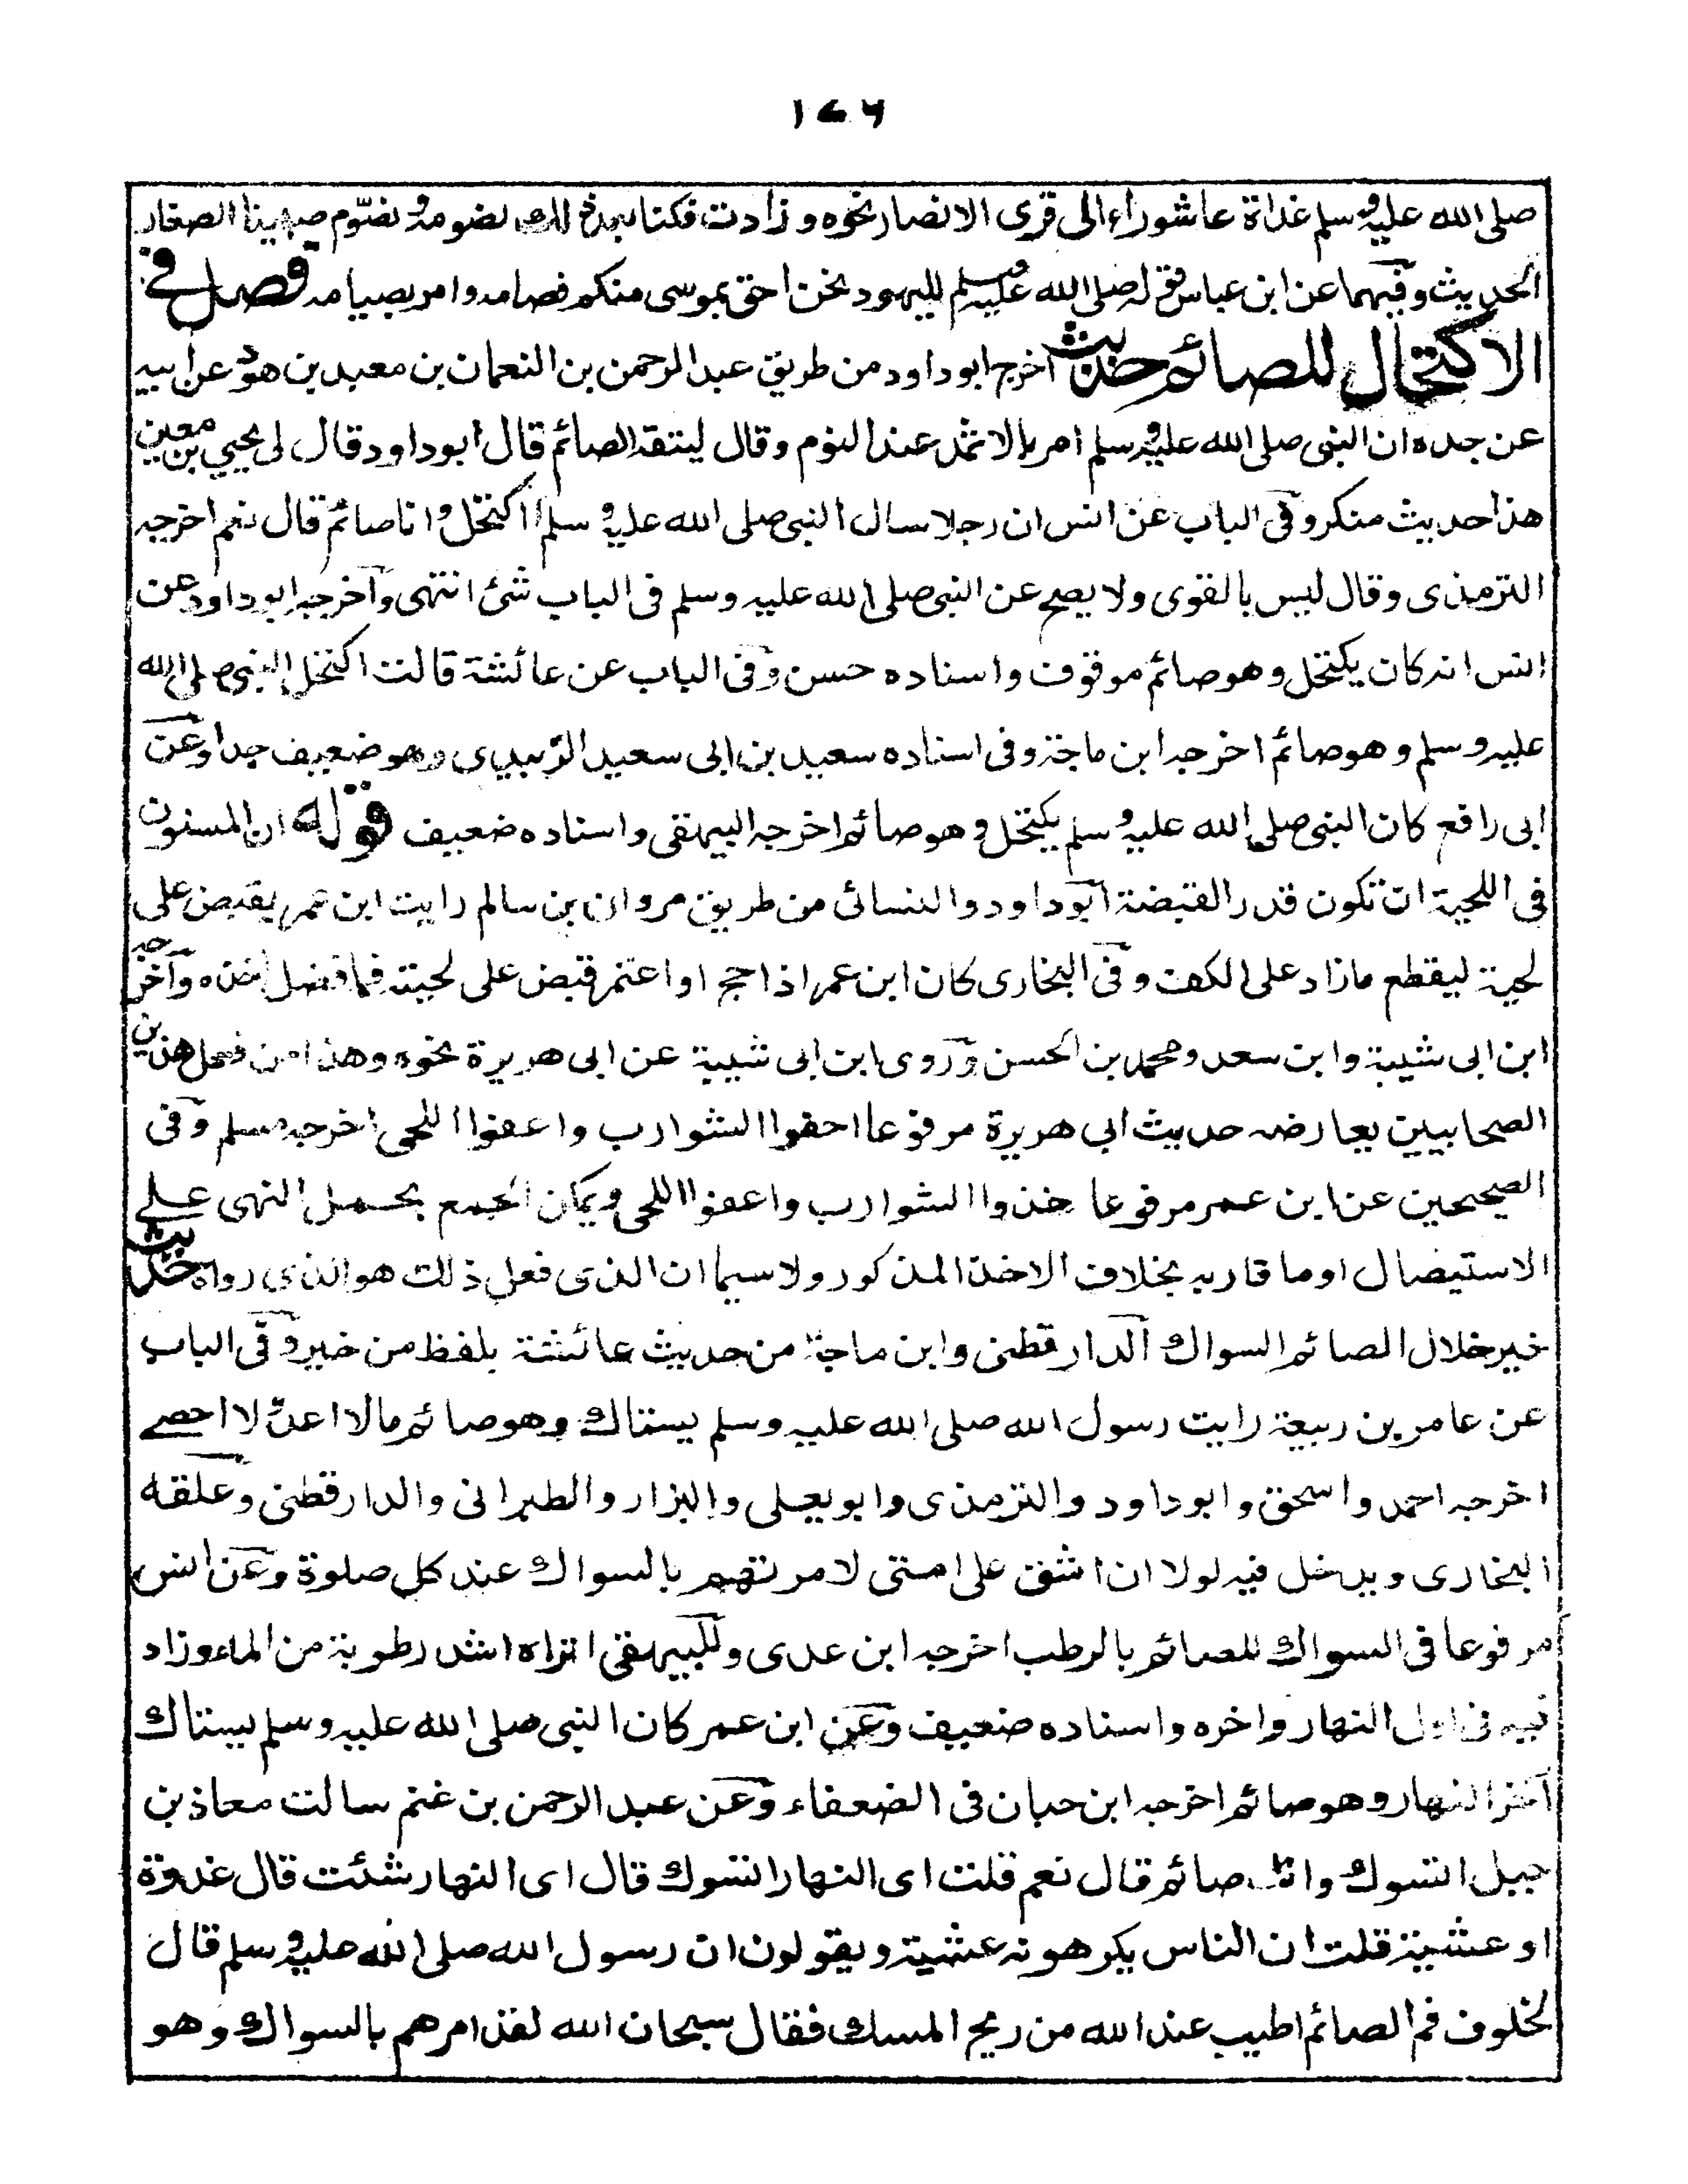 ١٧٦
صلى الله عليه وسلم غداة عاشوراء الى قرى الانصار نحوه وزادت فكنا بعد ذلك نصومه ونصوّم صبياننا الصغار
الحديث وفيهما عن ابن عباس قوله صلى الله عليه وسلم لليهود نحن احق بموسى منكم فصامه وامر بصيامه فصل فى
الاكتحال للصائم حديث اخرج ابو داود من طريق عبد الرحمن بن النعمان بن معبد بن هوذة عن ابيه
عن جده ان النبى صلى الله عليه وسلم امر بالاثمد عند النوم وقال ليتقه الصائم قال ابو داود قال لى يحيى بن معين
هذا حديث منكر وفى الباب عن انس ان رجلا سال النبى صلى الله عليه وسلم ااكتحل وانا صائم قال نعم اخرجه
الترمذى وقال ليس بالقوى ولا يصح عن النبى صلى الله عليه وسلم فى الباب شئ انتهى واخرجه ابو داود عن
انس انه كان يكتحل وهو صائم موقوف واسناده حسن وفى الباب عن عائشة قالت اكتحل النبى صلى الله
عليه وسلم وهو صائم اخرجه ابن ماجة وفى اسناده سعيد بن ابى سعيد الزبيدى وهو ضعيف جدا وعن
ابى رافع كان النبى صلى الله عليه وسلم يكتحل وهو صائم اخرجه البيهقى واسناده ضعيف قوله ان المسنون
فى اللحية ان تكون قدر القبضة ابو داود والنسائى من طريق مروان بن سالم رايت ابن عمر يقبض على
لحية ليقطع مازاد على الكف وفى البخارى كان ابن عمر اذا حج او اعتمر قبض على لحيته فما فضل اخذه واخرجه
ابن ابى شيبة وابن سعد ومحمد بن الحسن وروى ابن ابى شيبة عن ابى هريرة نحوه وهذا من فعل هذين
الصحابيين يعارضه حديث ابى هريرة مرفوعا احفوا الشوارب واعفوا اللحى اخرجه مسلم وفى
الصحيحين عن ابن عمر مرفوعا خذوا الشوارب واعفوا اللحى ويمكن الجمع بحمل النهى على
الاستيصال او ما قاربه بخلاف الاخذ المذكور ولا سيما ان الذى فعل ذلك هو الذى رواه حديث
خير خلال الصائم السواك الدارقطنى وابن ماجة من حديث عائشة بلفظ من خير وفى الباب
عن عامر بن ربيعة رايت رسول الله صلى الله عليه وسلم يستاك وهو صائم مالا اعدّ لا احصے
اخرجه احمد واسحق وابو داود والترمذى وابو يعلى والبزار والطبرانى والدارقطنى وعلقه
البخارى ويدخل فيه لولا ان اشق على امتى لامرتهم بالسواك عند كل صلوة وعن انس
مرفوعا فى السواك للصائم بالرطب اخرجه ابن عدى وللبيهقى اتراه اشد رطوبة من الماء وزاد
فيه فى اول النهار واخره واسناده ضعيف وعن ابن عمر كان النبى صلى الله عليه وسلم يستاك
آخر النهار وهو صائم اخرجه ابن حبان فى الضعفاء وعن عبد الرحمن بن غنم سالت معاذ بن
جبل اتسوك وانا صائم قال نعم قلت اى النهار اتسوك قال اى النهار شئت قال غدوة
او عشية قلت ان الناس يكرهونه عشية ويقولون ان رسول الله صلى الله عليه وسلم قال
لخلوف فم الصائم اطيب عند الله من ريح المسك فقال سبحان الله لقد امرهم بالسواك وهو